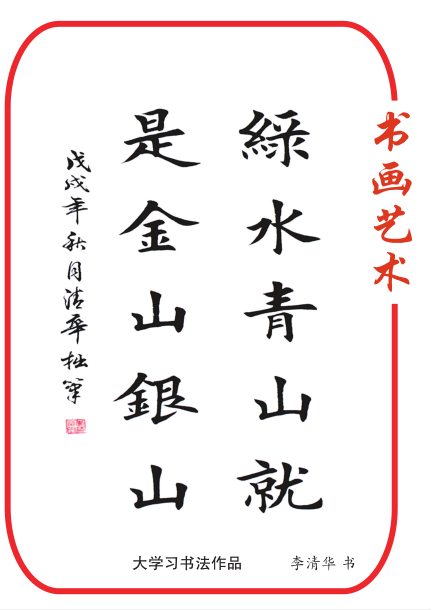 书画艺术
綠水青山就
是金山銀山
戊戌年秋月清华拙笔
大学习书法作品 李清华 书